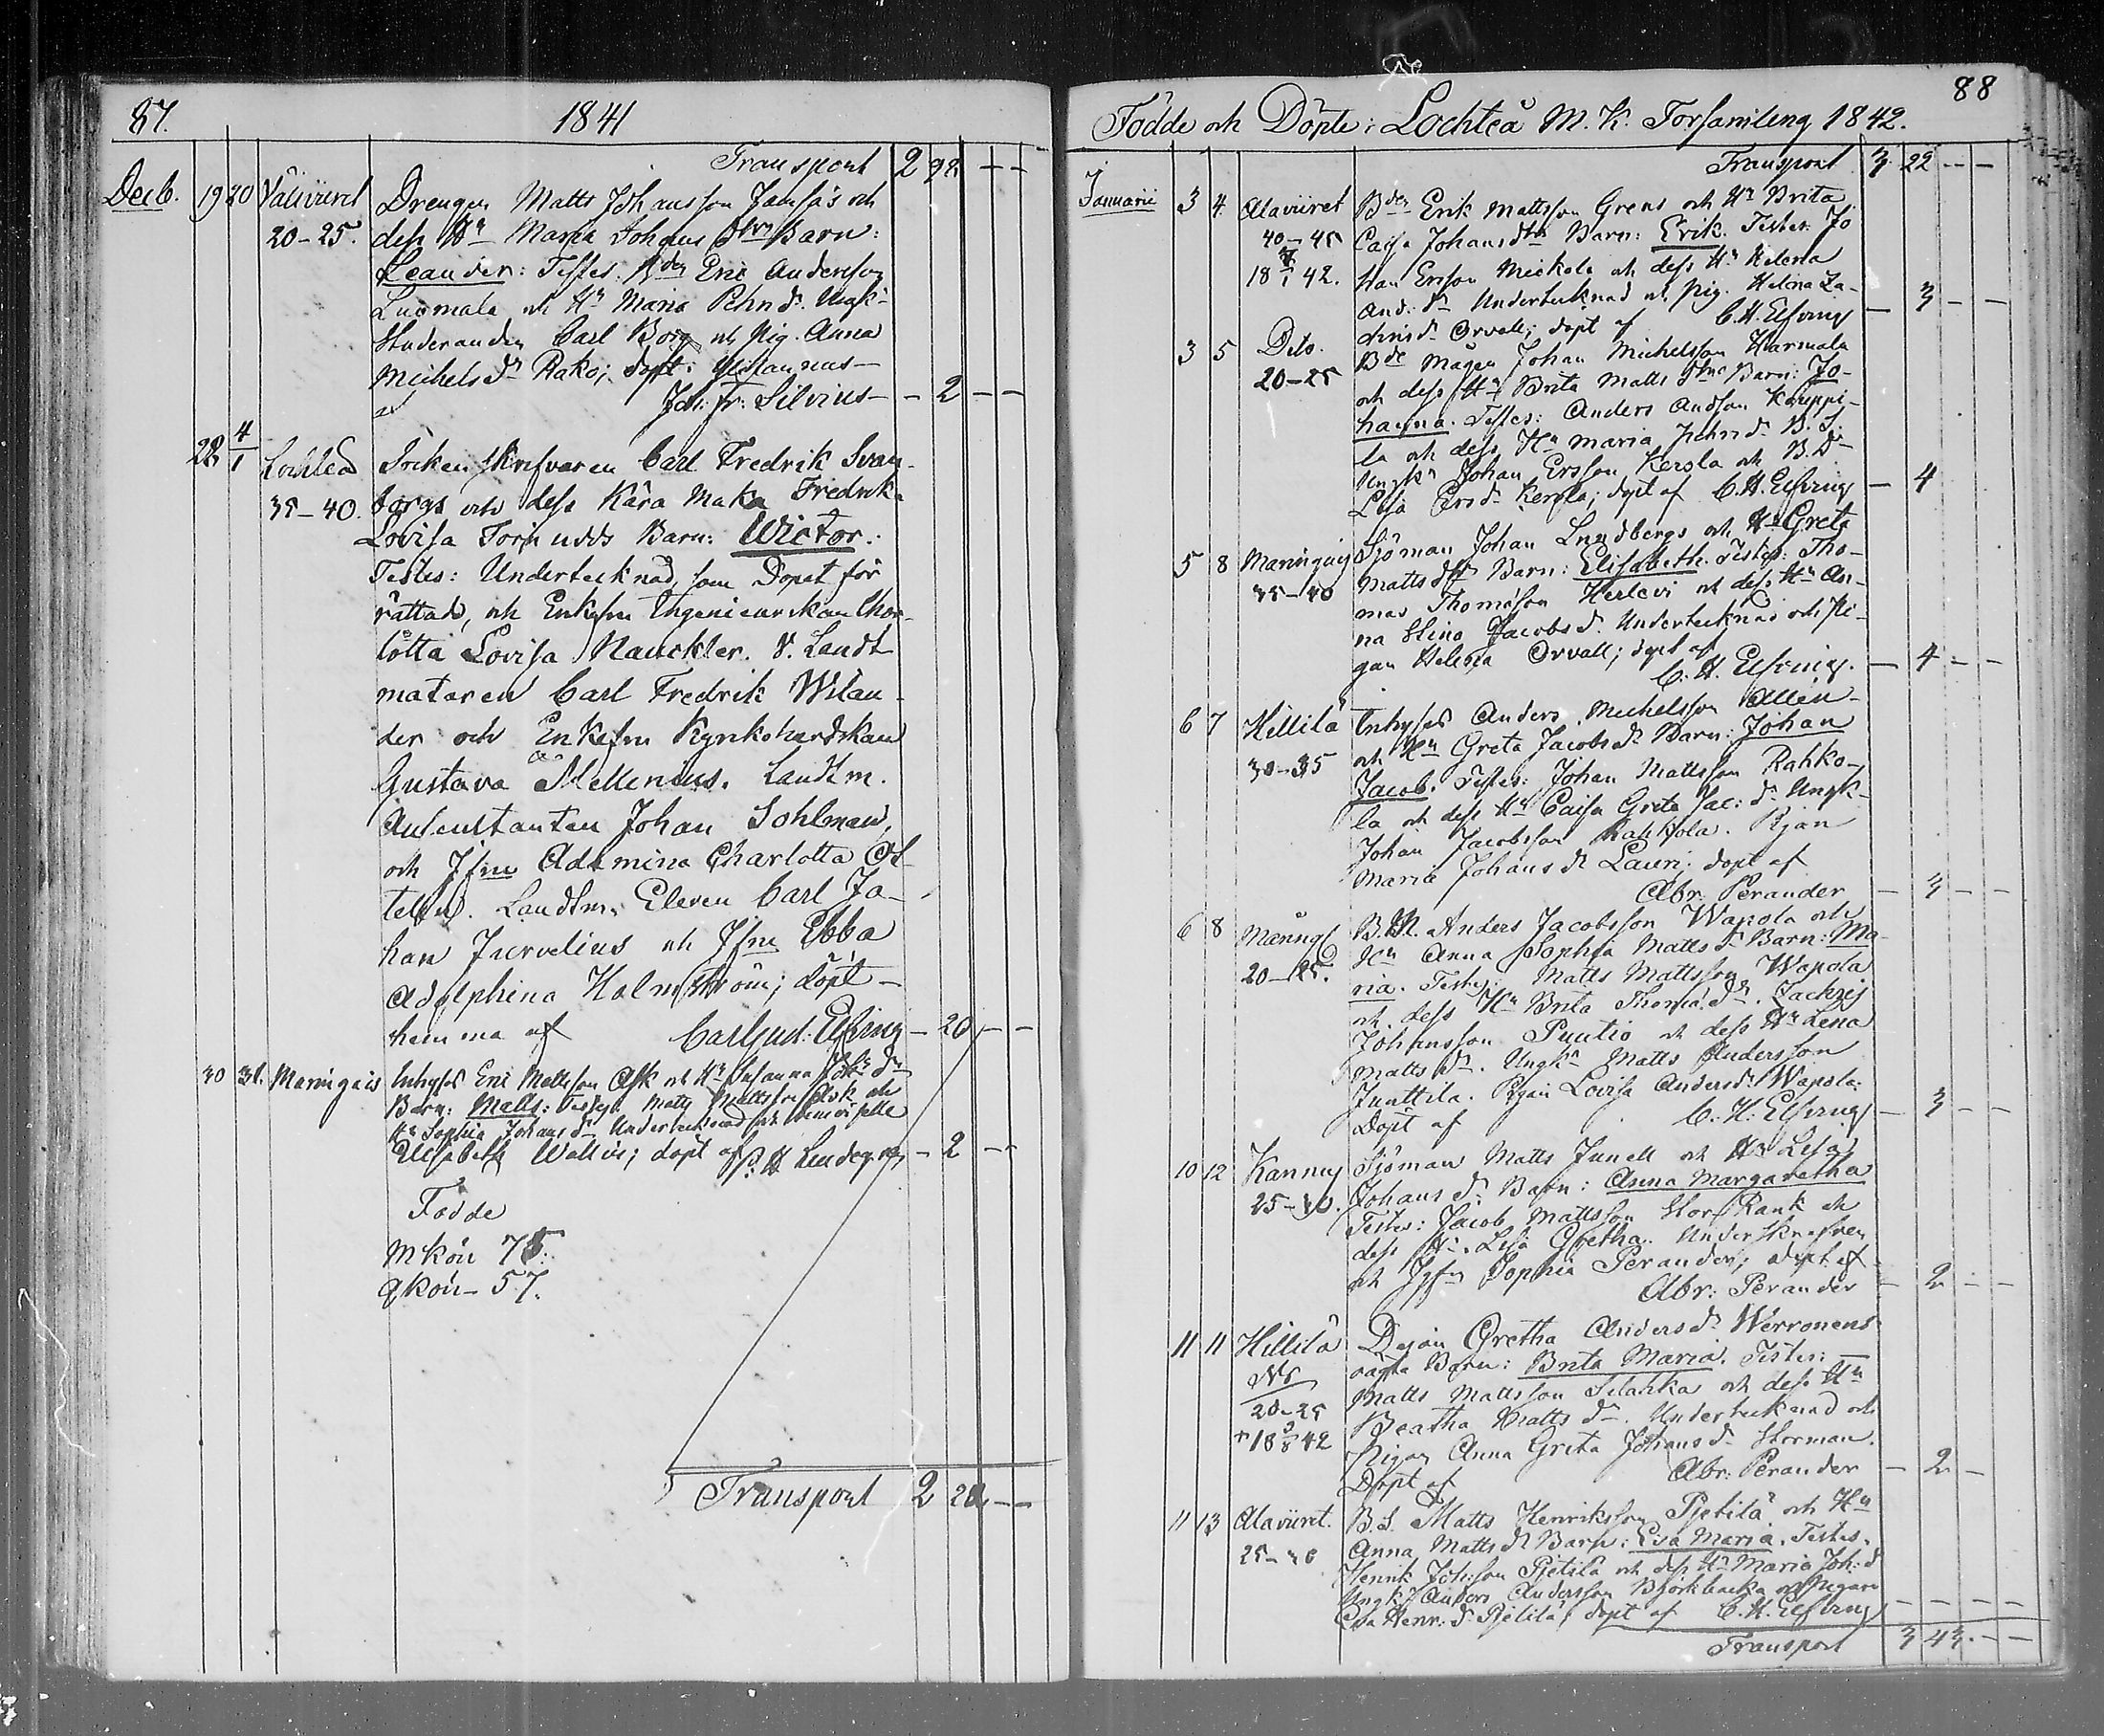 87.
1841
Transport 2 98 - -
Decb. 19 20 Väliviiret Drengen Matts Johansson Jamsás och
20-25. dess Hu Maria Johans dtrs Barn:
Leander: Testes. Bden Eric Andersson
Luomala och Hu Maria Pehrsdr. Ungk.
Studeranden Carl Borg och Pig. Anna
Michelsdr Rako; döpt:
Joh: Fr: Silvius - - 2 - -
28 4/1 Lochteå Sockenskrifvaren Carl Fredrik Svan-
35-40. borgs och dess Kära Maka Fredrika
Lovisa Tornudds Barn: Wictor.
Testes: Undertecknad, som Dopet för-
rättad, och Enkefru Ingenieurskan Char-
lotta Lovisa Nauckler. V. Landt
mätaren Carl Fredrik Wilan-
der och Enkefru Kyrkoherdskan
Gustava Mellenius. Landtm.
Auscultanten Johan Sohlman,
och Jfru Adamina Charlotta
Landtm. Eleven Carl Jo-
han Jurvelius och Jfru Ebba
Adolphina Holmström; döpt
hemma af Carl Gust: Elfving - 20 - -
30 31. Maringais Inhyses Eric Mattsson Ask och Hu Susanna Johs dr
Barn: Matts: Testes. Matts Mattsson Ask och
Hu Sophia Johansdr Undertecknad och
Elisabeth Wallin; döpt af P. H. Lindegren - 2 - -
Födde
Mkön 75.
Qkön - 57.
Transport 2 20 - -
88
Födde och Döpte i Lochteå M. K. Församling 1842.
Transport 3 22 - -
Januarii 3 4 Alaviiret Bden Erik Mattsson Grens och Hu Brita
40-45 Caisa Johansdtrs Barn: Erik. Testes: Jo-
18 7/1 42. han Ersson Mickola och dess Hu Helena
And: dr Undertecknad och Pig. Helena Za-
chrisdr Orvall; döpt af C. H. Elfving - 3 - -
3 5 Dito. Bde Mågen Johan Michelsson Harmala
20-25 och dess Hu Brita Matts dtrs Barn: Jo-
hanna. Testes: Anders Andsson Kauppi-
la och dess Hu Maria Johnsdr B. S.
Ungkn Johan Ersson Kerola och B. Dr
Lisa Ersdr Kerola; döpt af C. H. Elfving - 4
5 8 Maringais Sjöman Johan Lundbergs och Hu Greta
35-40 Mattsdtrs Barn: Elisabeth. Testes: Tho-
mas Thomasson Herlevi och dess Hu An-
na Stina Jacobsdr. Undertecknad och Pi-
gan Helena Orvall; döpt af
C. H. Elfving. - 4 - -
6 7 Hillilä Inhyses Anders Michelsson Allén
30-35 och Hu Greta Jacobsdr Barn: Johan
Jacob. Testes: Johan Mattsson Rahko-
la och dess Hu Caisa Greta Jac: dr Ungk
Johan Jacobsson Rahkola. Pigan
Maria Johansdr Lauri: döpt af
Abr: Perander - 3 - -
6 8 B. M. Anders Jacobsson Wapola och
20-25. Hu Anna Sophia Mattsdr Barn: Ma-
ria. Testes: Matts Mattsson Wapola
och dess Hu Brita Thomasdr. Zachris
Johansson Puutio och dess Hu Lena
Mattsdr. Ungkn Matts Andersson
Junttila. Pigan Lovisa Andersdr Wapola:
Döpt af C. H. Elfving - 3 - -
10 12 Kannus Sjöman Matts Junell och Hu Lisa
25-30. Johansdr Barn: Anna Margaretha
Testes: Jacob Mattsson Stor Rank och
dess Hu Lisa Gretha. Underskrefven
och Jgfru Sophia Perander; döpt af
Abr: Perander - 2 - -
11 11 Hillilä Dejan Gretha Andersdr Werronens
No oägta Barn: Brita Maria. Testes:
20-25 Matts Mattsson Silahka och dess Hu
+ 18 3/8 42 Beatha Mattsdr. Undertecknad och
Pigan Anna Greta Johansdr Storman.
Döpt af Abr: Perander - 2 -
11 13 Alaviiret. B. S. Matts Henriksson Pjetilä och Hu
25-30 Anna Mattsdr Barn: Lisa Maria. Testes.
Henrik Johsson Pjetilä och dess Hu Maria Joh: dr
Ungk. Anders Andersson Björkbacka och Pigan
Lisa Henr: dr Pjetilä; döpt af C. H. Elfving - - - -
Transport 3 43. - -